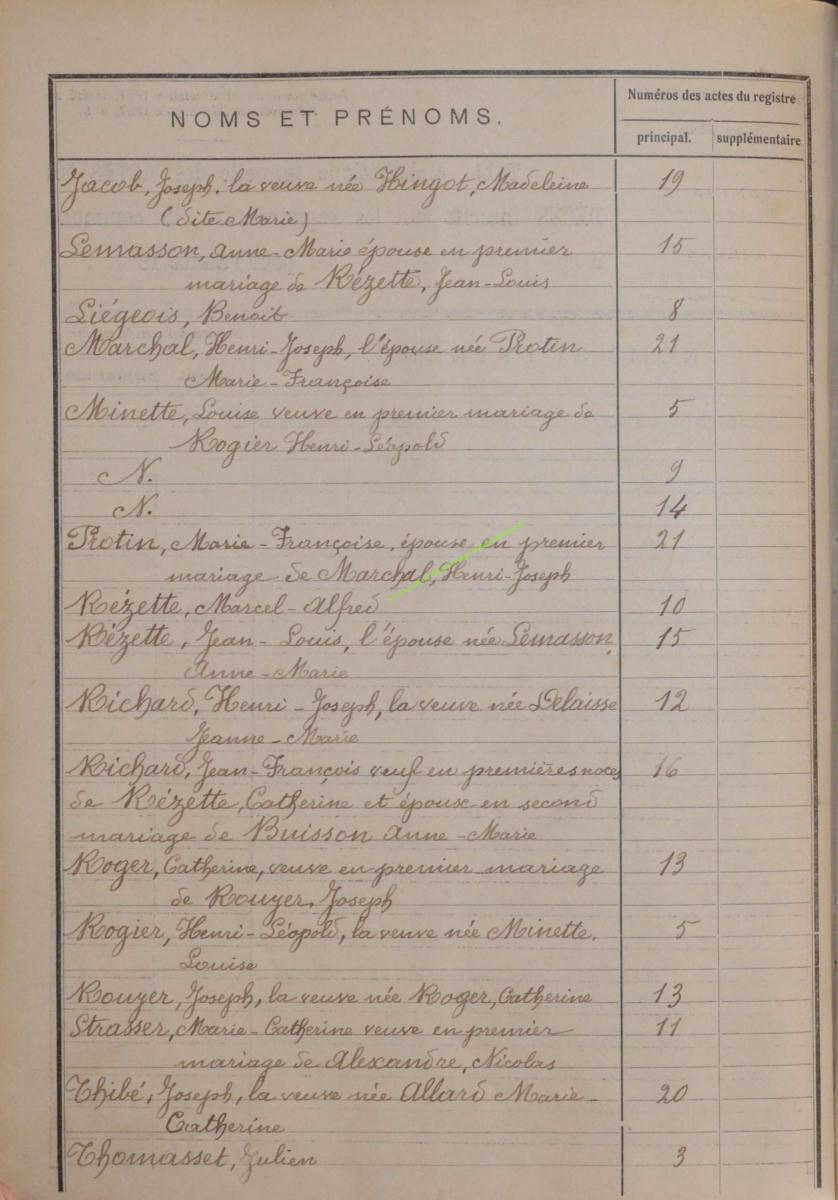 NOMS ET PRÉNOMS.
Numéros des actes du registre
principal. supplémentaire
Jacob, Joseph, la veuve née Hingot, Madeleine 19
(dite Marie)
Lemasson, Anne-Marie épouse en premier 15
mariage de Rézette, Jean-Louis
Liégeois, Benoit 8
Marchal, Henri-Joseph, l'épouse née Protin 21
Marie-Françoise
Minette, Louise veuve en premier mariage de 5
Rogier Henri-Léopold
N. 9
N. 14
Protin, Marie-Françoise, épouse en premier 21
mariage de Marchal, Henri-Joseph
Rézette, Marcel-Alfred 10
Rézette, Jean-Louis, l'épouse née Lemasson, 15
Anne-Marie
Richard, Henri-Joseph, la veuve née Delaisse 12
Jeanne-Marie
Richard, Jean-François veuf en premières noces 16
de Rézette, Catherine et époux en second
mariage de Buisson Anne-Marie
Roger, Catherine, veuve en premier mariage 13
de Rouyer, Joseph
Rogier, Henri-Léopold, la veuve née Minette, 5
Louise
Rouyer, Joseph, la veuve née Roger, Catherine 13
Strasser, Marie-Catherine veuve en premier 11
mariage de Alexandre, Nicolas
Thibé, Joseph, la veuve née Allard Marie- 20
Catherine
Thomasset, Julien 3